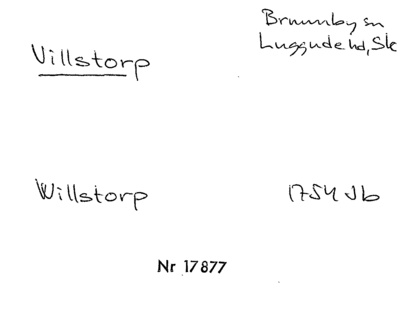 Villstorp
Brunnby sn
Luggude hd, Sk
Willstorp
1754 Jb
Nr 17877